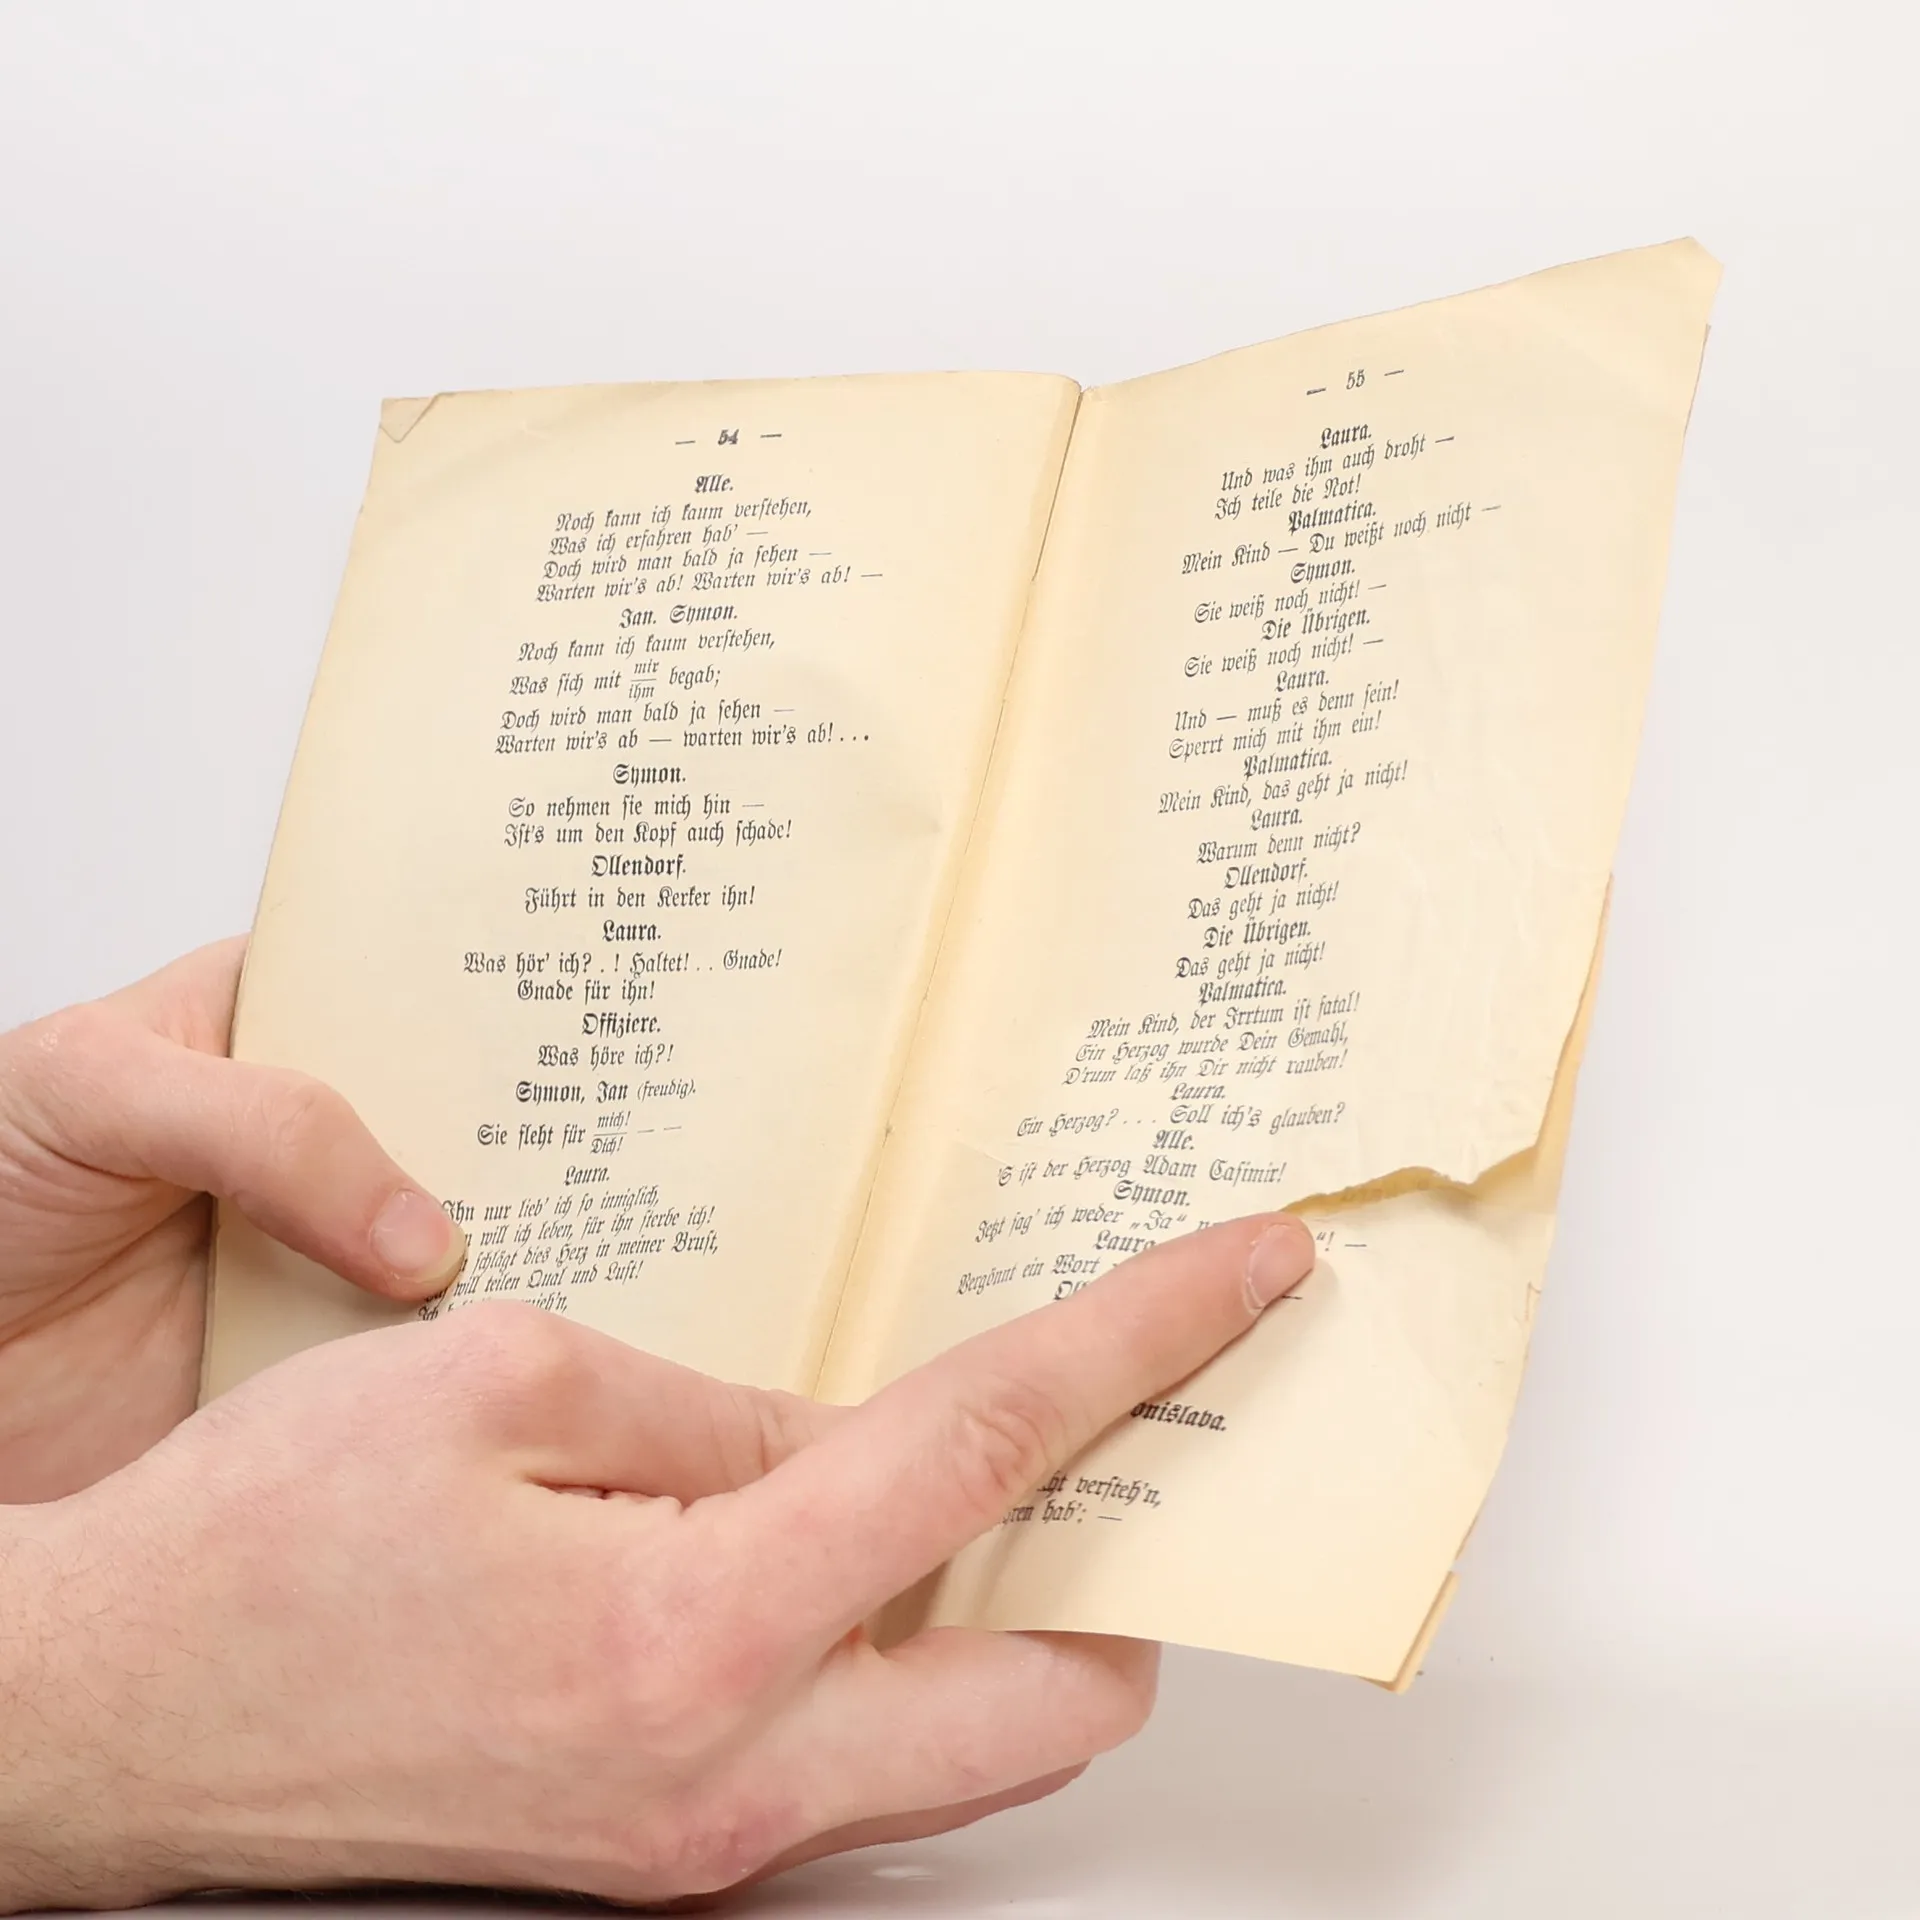 — 54 —
Alle.
Noch kann ich kaum verstehen,
Was ich erfahren hab' —
Doch wird man bald ja sehen —
Warten wir's ab! Warten wir's ab! —
Jan. Symon.
Noch kann ich kaum verstehen,
Was sich mit mir/ihm begab;
Doch wird man bald ja sehen —
Warten wir's ab — warten wir's ab! . . .
Symon.
So nehmen sie mich hin —
Ist's um den Kopf auch schade!
Ollendorf.
Führt in den Kerker ihn!
Laura.
Was hör' ich? . ! Haltet! . . Gnade!
Gnade für ihn!
Offiziere.
Was höre ich?!
Symon, Jan (freudig).
Sie fleht für mich!/Dich! — —
Laura.
Ihn nur lieb' ich so inniglich,
will ich leben, für ihn sterbe ich!
schlägt dies Herz in meiner Brust,
will teilen Qual und Lust!
Ich
— 55 —
Laura.
Und was ihm auch droht —
Ich teile die Not!
Palmatica.
Mein Kind — Du weißt noch nicht —
Symon.
Sie weiß noch nicht! —
Die Übrigen.
Sie weiß noch nicht! —
Laura.
Und — muß es denn sein!
Sperrt mich mit ihm ein!
Palmatica.
Mein Kind, das geht ja nicht!
Laura.
Warum denn nicht?
Ollendorf.
Das geht ja nicht!
Die Übrigen.
Das geht ja nicht!
Palmatica.
Mein Kind, der Irrtum ist fatal!
Ein Herzog wurde Dein Gemahl,
D'rum laß ihn Dir nicht rauben!
Laura.
Ein Herzog? . . . Soll ich's glauben?
Alle.
'S ist der Herzog Adam Casimir!
Symon.
Jetzt sag' ich weder „Ja“ “! —
Laura
Vergönnt ein Wort
—
onislava.
versteh'n,
hab': —